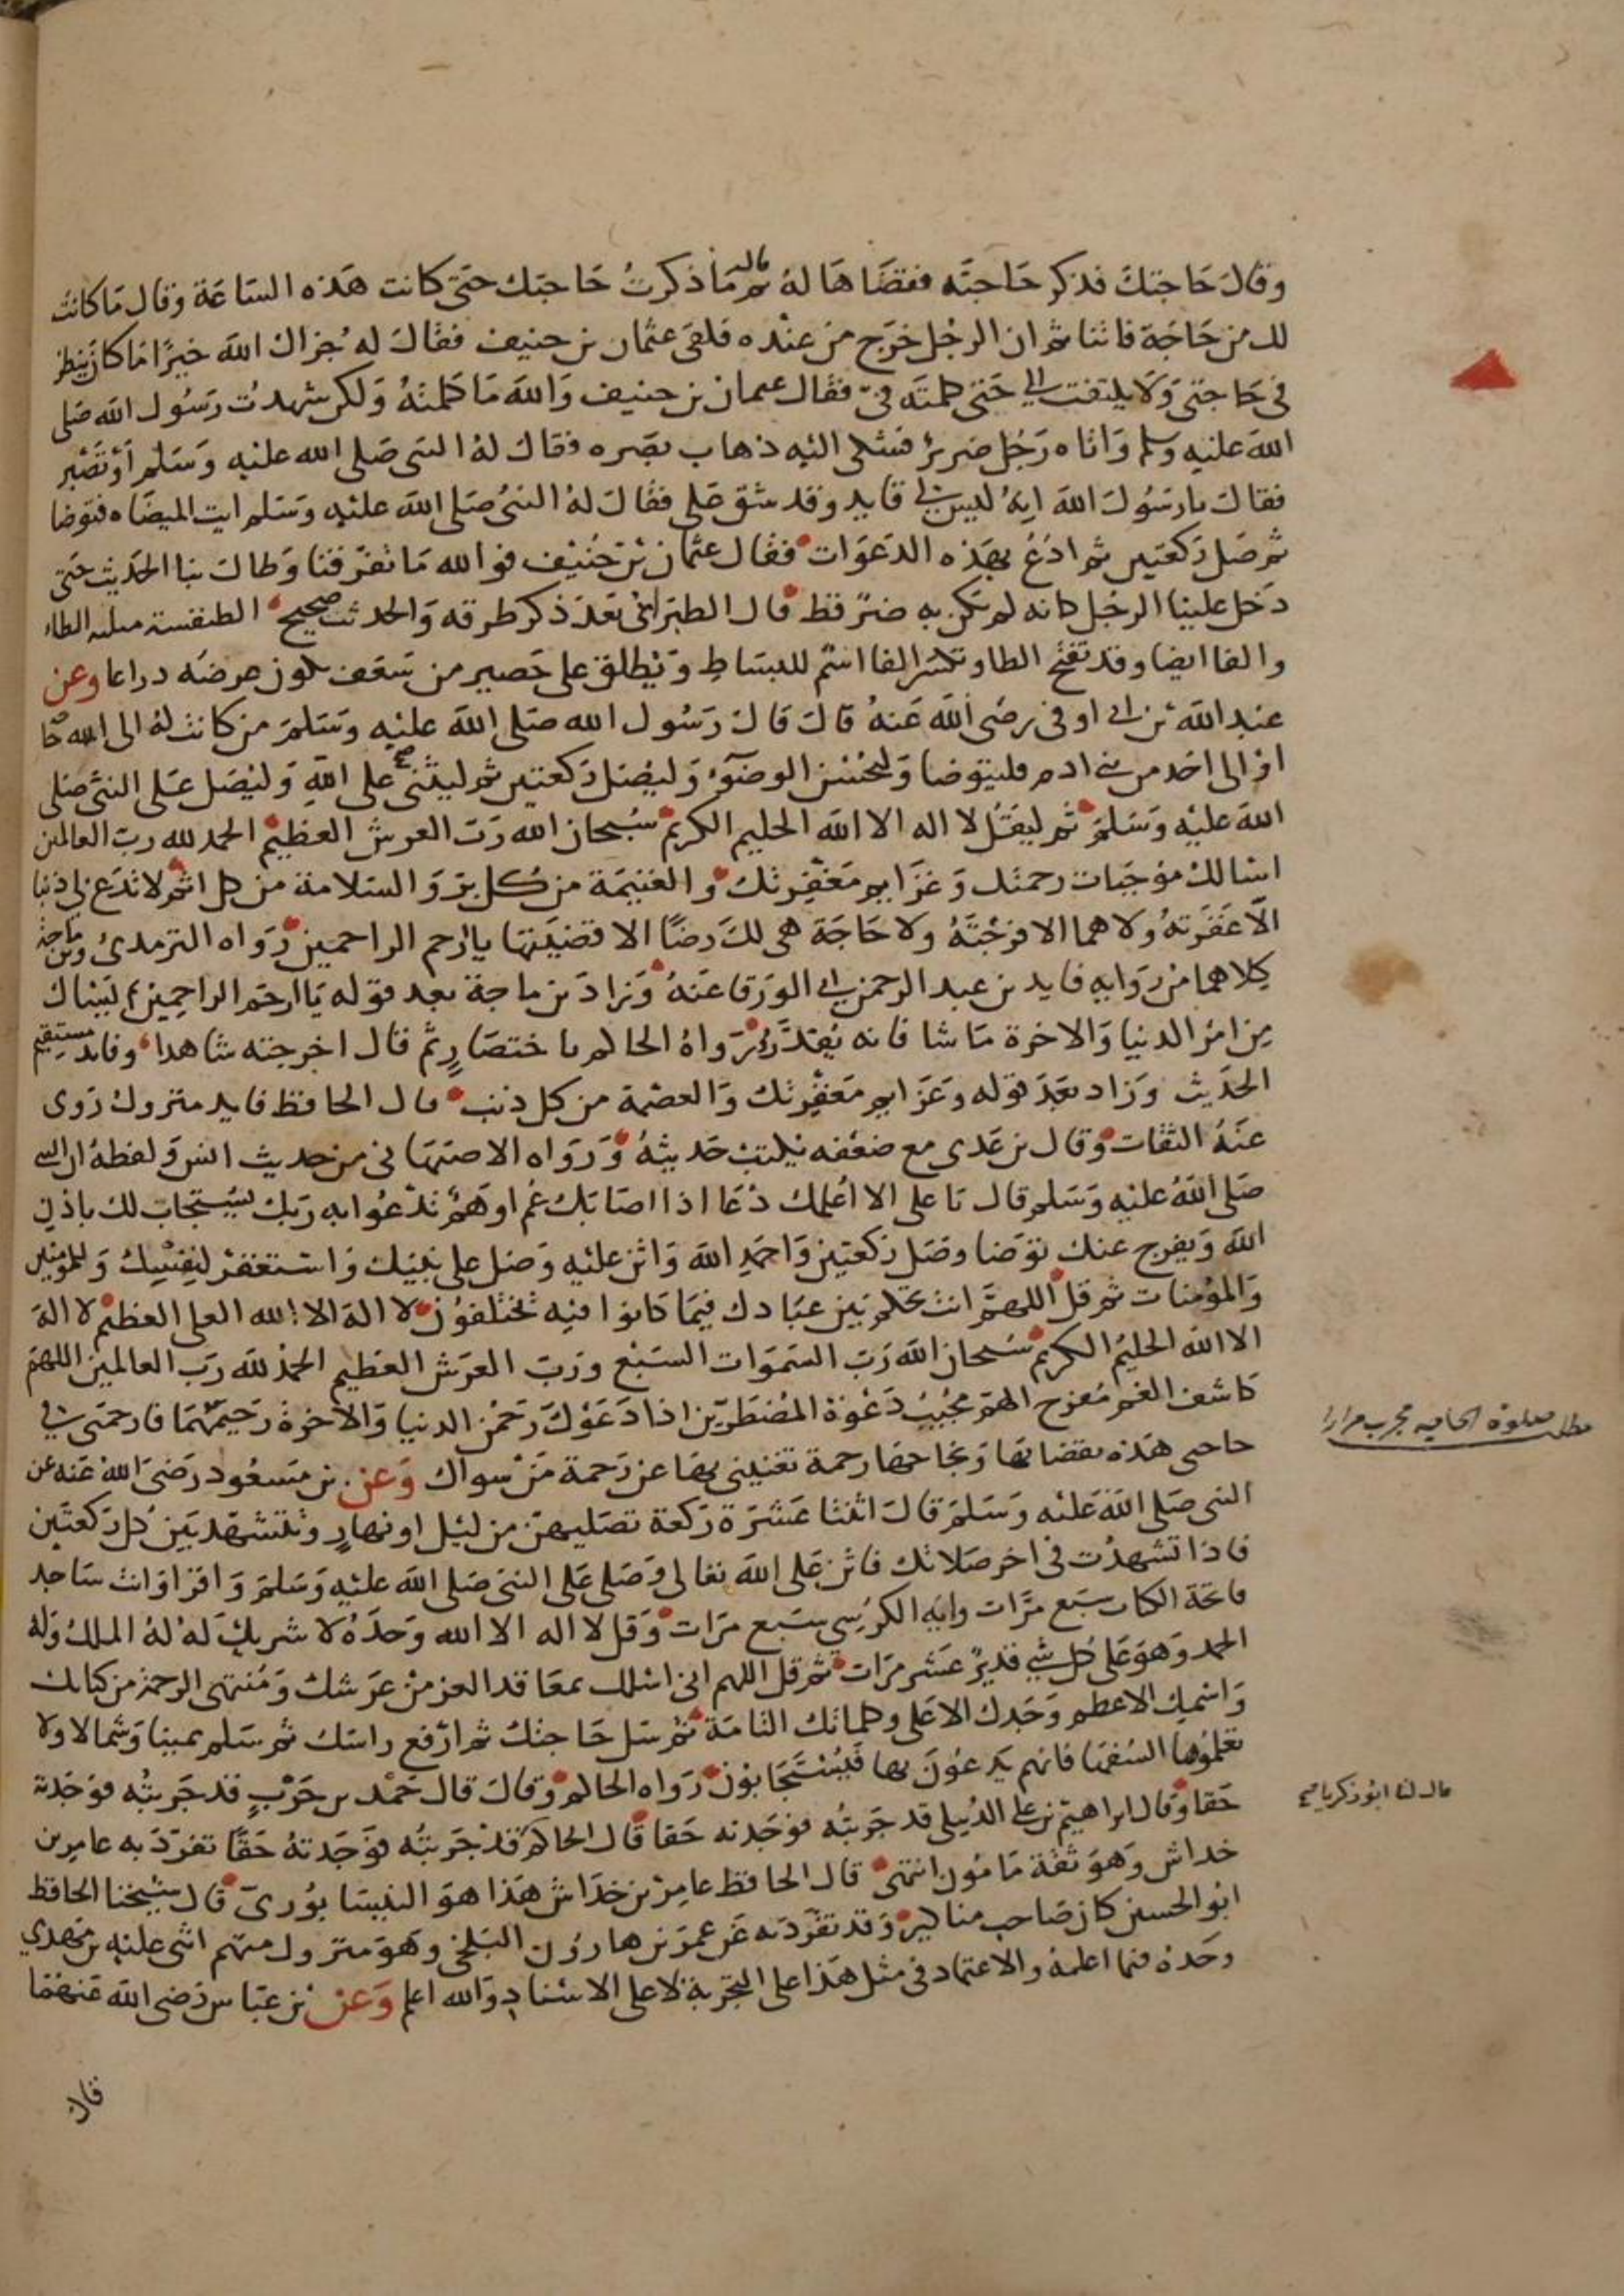 وقال حاجتك فذكر حاجته فقضاها له ثم قال ما ذكرت حاجتك حتى كانت هذه الساعة وقال ما كانت
لك من حاجة فاتنا ثم ان الرجل خرج من عنده فلقى عثمان بن حنيف فقال له جزاك الله خيرا ما كان ينظر
فى حاجتى ولا يلتفت الى حتى كلمته فىّ فقال عثمان بن حنيف والله ما كلمته ولكن شهدت رسول الله صلى
الله عليه وسلم واتاه رجل ضرير فشكى اليه ذهاب بصره فقال له النبى صلى الله عليه وسلم أو تصبر
فقال يا رسول الله انه ليس لى قايد وقد شق على فقال له النبى صلى الله عليه وسلم ايت الميضاه فتوضا
ثم صل ركعتين ثم ادع بهذه الدعوات فقال عثمان بن حنيف فوالله ما تفرقنا وطال بنا الحديث حتى
دخل علينا الرجل كانه لم يكن به ضر قط قال الطبرانى بعد ذكر طرقه والحديث صحيح الطنفسة مثلثه الطاء
والفا ايضا وقد تفتح الطا وتكسر الفا اسم للبساط ويطلق على حصير من سعف يكون عرضه ذراعا وعن
عبد الله بن ابى اوفى رضى الله عنه قال قال رسول الله صلى الله عليه وسلم من كانت له الى الله حا
او الى احد من بنى ادم فليتوضا وليحسن الوضوء وليصل ركعتين ثم ليثنى على الله وليصل على النبى صلى
الله عليه وسلم ثم ليقل لا اله الا الله الحليم الكريم سبحان الله رب العرش العظيم الحمد لله رب العالمين
اسالك موجبات رحمتك وعزايم مغفرتك والغنيمة من كل بر والسلامة من كل اثم لا تدع لى ذنبا
الا غفرته ولا هما الا فرجته ولا حاجة هى لك رضا الا قضيتها يا ارحم الراحمين رواه الترمذى وبن ماجة
كلاهما من روايه فايد بن عبد الرحمن ابى الورقا عنه وزاد بن ماجة بعد قوله يا ارحم الراحمين ثم يسال
من امر الدنيا والاخرة ما شا فانه يقدر رواه الحاكم باختصار ثم قال اخرجته شاهدا وفايد مستقيم
الحديث وزاد بعد قوله وعزايم مغفرتك والعصمة من كل ذنب قال الحافظ فايد متروك روى
عنه الثقات وقال بن عدى مع ضعفه يكتب حديثه ورواه الاصبهانى من حديث انس ولفظه ان النبى
صلى الله عليه وسلم قال يا على الا اعلمك دعا اذا اصابك غم او هم تدعوا به ربك يستجاب لك باذن
الله ويفرج عنك توضا وصل ركعتين واحمد الله واثن عليه وصل على نبيك واستغفر لنفسك وللمومنين
والمؤمنات ثم قل اللهم انت تحكم بين عبادك فيما كانوا فيه يختلفون لا اله الا الله العلى العظيم لا اله
الا الله الحليم الكريم سبحان الله رب السموات السبع ورب العرش العظيم الحمد لله رب العالمين اللهم
كاشف الغم مفرج الهم مجيب دعوة المضطرين اذا دعوك رحمن الدنيا والاخرة رحيمهما فارحمنى فى
حاجتى هذه بقضائها ونجاحها رحمة تغنينى بها عن رحمة من سواك وعن بن مسعود رضى الله عنه عن
النبى صلى الله عليه وسلم قال اثنتا عشرة ركعة تصليهن من ليل او نهار وتتشهد بين كل ركعتين
فاذا تشهدت فى اخر صلاتك فاثن على الله تعالى وصلى على النبى صلى الله عليه وسلم واقرا وانت ساجد
فاتحة الكتاب سبع مرات واية الكرسى سبع مرات وقل لا اله الا الله وحده لا شريك له له الملك وله
الحمد وهو على كل شى قدير عشر مرات ثم قل اللهم انى اسلك بمعاقد العز من عرشك ومنتهى الرحمة من كتابك
واسمك الاعظم وجدك الاعلى وكلماتك التامة ثم سل حاجتك ثم ارفع راسك ثم سلم يمينا وشمالا ولا
تعلموها السفها فانهم يدعون بها فيستجابون رواه الحاكم وقال قال احمد بن حرب قد جربته فوجدته
حقا وقال ابراهيم بن على الدبيلى قد جربته فوجدته حقا قال الحاكم قد جربته فوجدته حقا تفرد به عامر بن
خداش وهو ثقة مامون انتهى قال الحافظ عامر بن خداش هذا هو النيسابورى قال شيخنا الحافظ
ابو الحسن كان صاحب مناكير وقد تفرد به عن عمر بن هارون البلخى وهو متروك متهم اثنى عليه بن مهدي
وحده فيما اعلمه والاعتماد فى مثل هذا على التجربة لا على الاسناد والله اعلم وعن بن عباس رضى الله عنهما
قال
مطلب صلوة الحاجه مجرب مرارا
قال لنا ابو زكريا صح